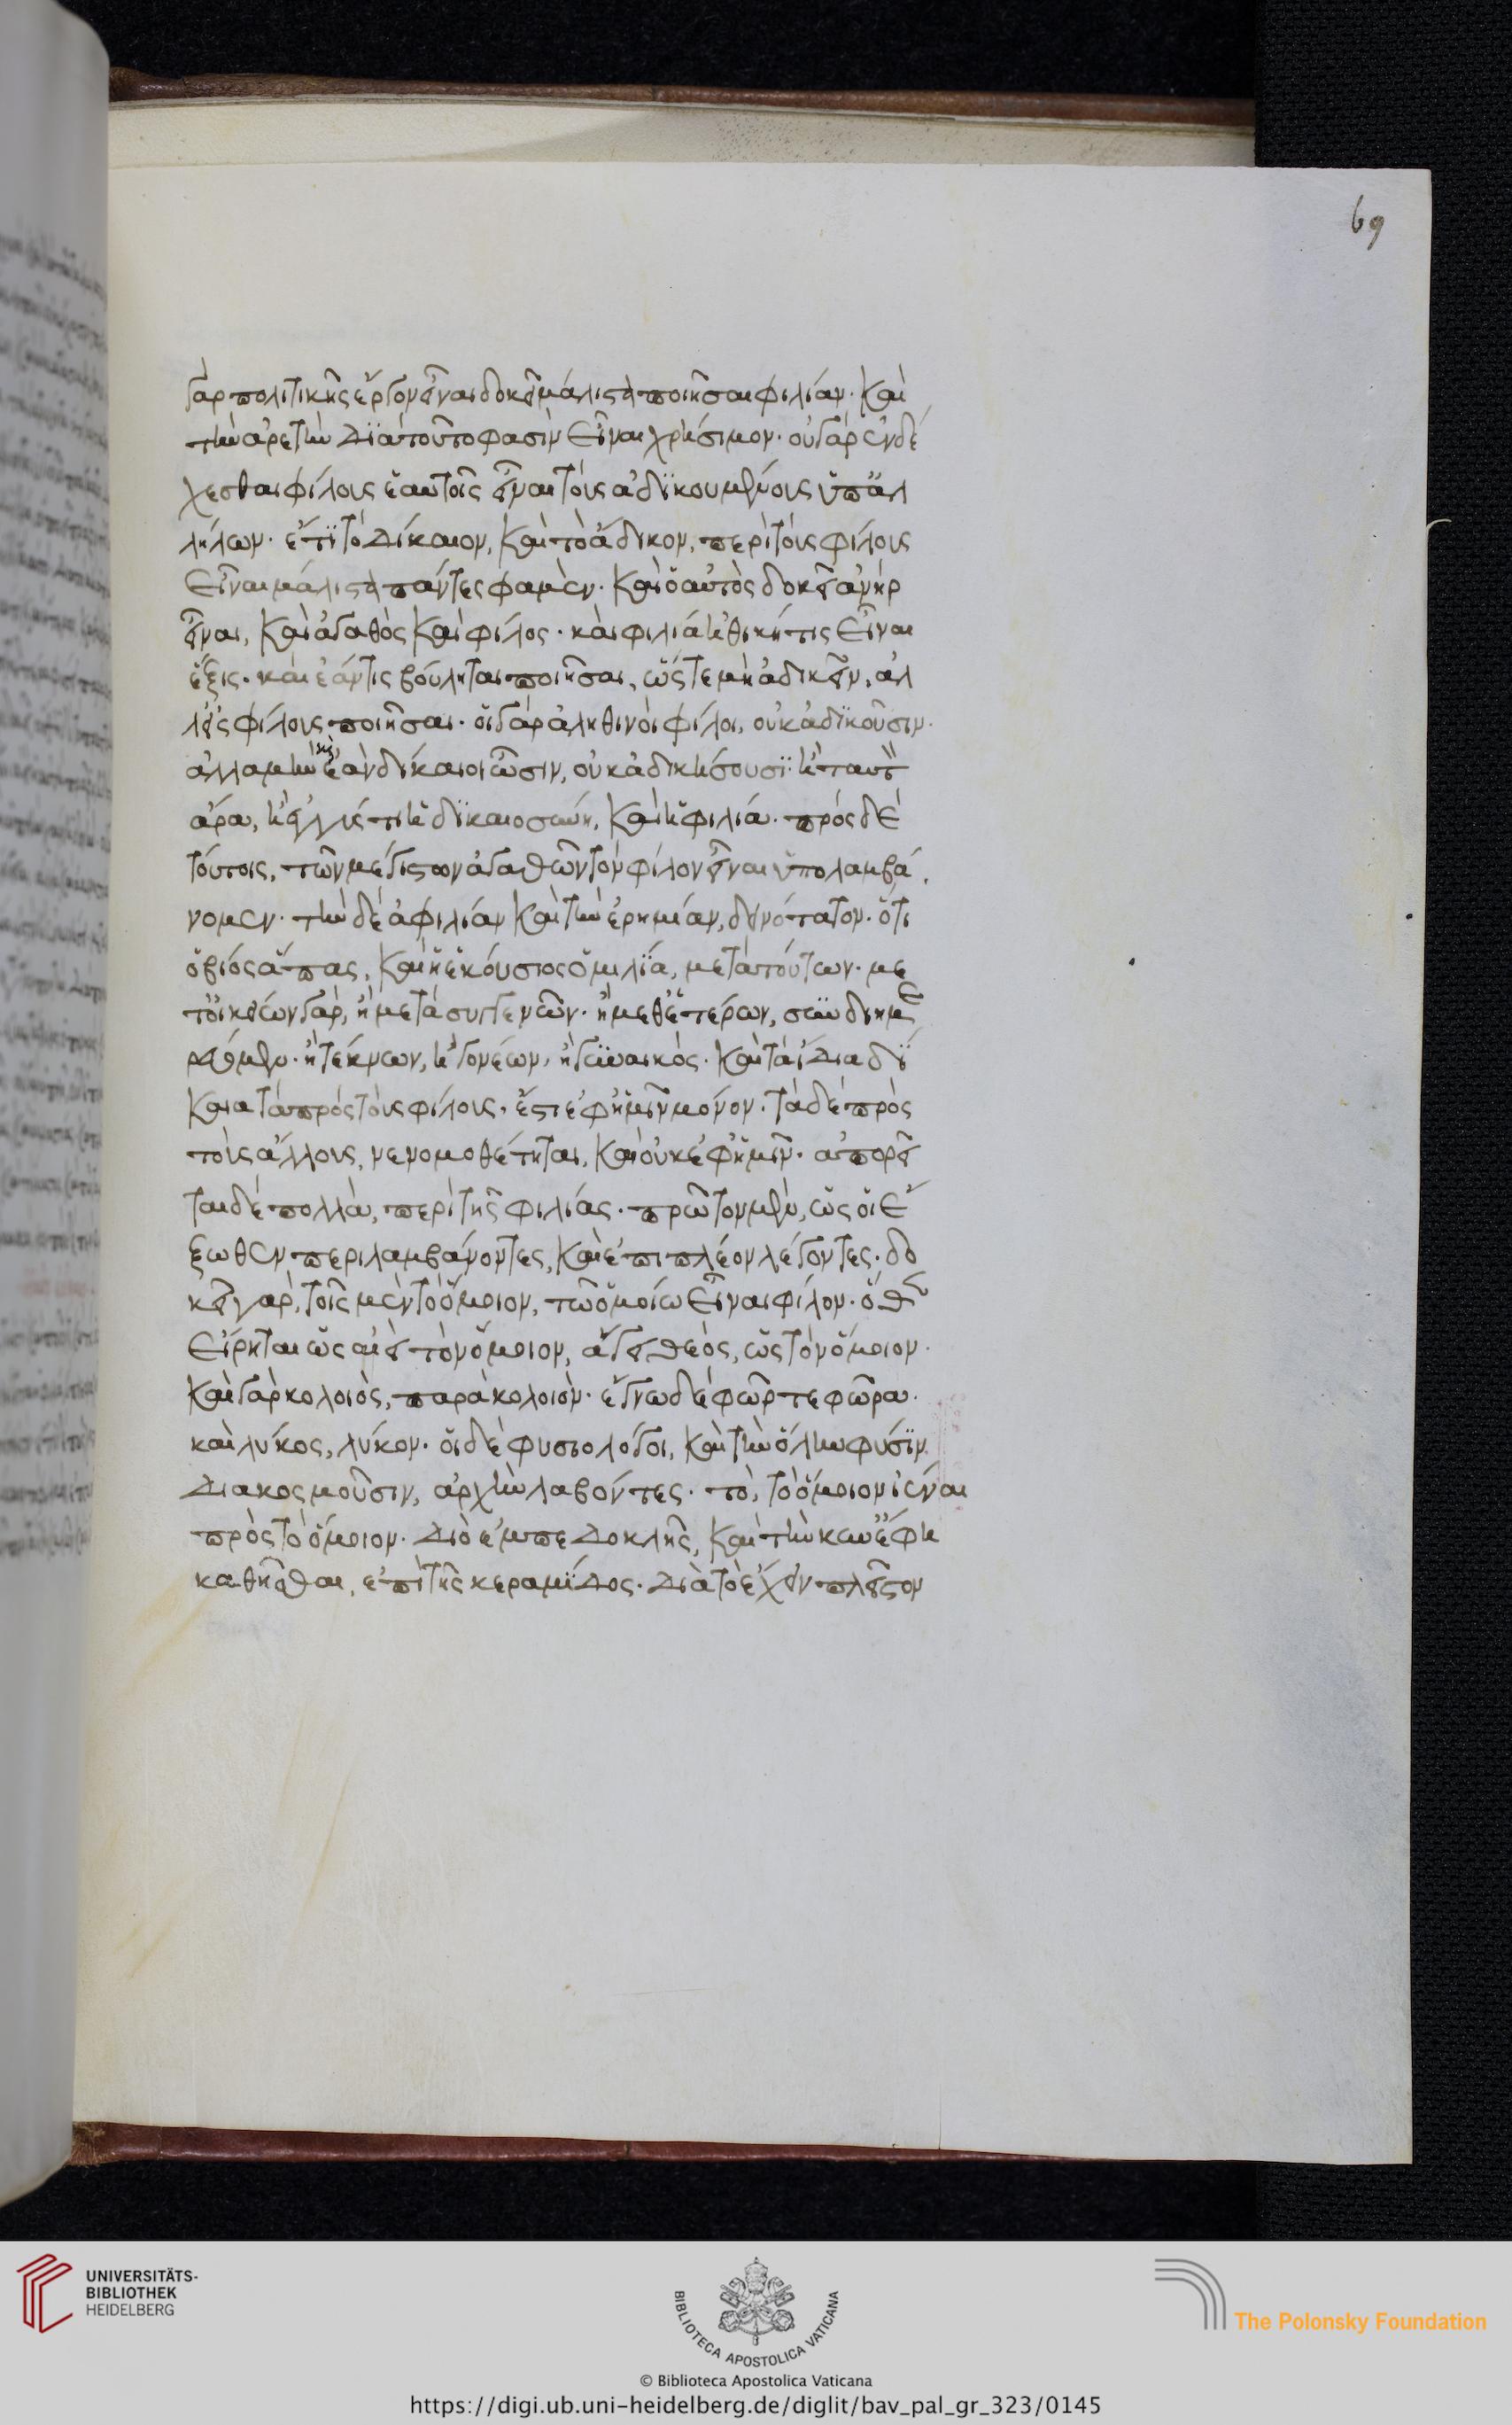 69
γὰρ πολιτικῆς ἔργον εἶναι δοκεῖ μάλιστα ποιῆσαι φιλίαν· καὶ
τὴν ἀρετὴν διὰ τοῦτο φασὶν εἶναι χρήσιμον· οὐ γὰρ ἐνδέ
χεσθαι φίλους ἑαυτοῖς εἶναι τοὺς ἀδικουμένους ὑπ' ἀλ
λήλων· ἔτι τὸ δίκαιον, καὶ τὸ ἄδικον, περὶ τοὺς φίλους
εἶναι μάλιστα πάντες φαμὲν· καὶ ὁ αὐτὸς δοκεῖ ἀνὴρ
εἶναι, καὶ ἀγαθὸς καὶ φίλος· καὶ φιλία ἠθική τις εἶναι
ἕξις· καὶ ἐάν τις βούληται ποιῆσαι, ὥστε μὴ ἀδικεῖν, ἀλ
λ' εἰς φίλους ποιῆσαι· οἱ γὰρ ἀληθινοὶ φίλοι, οὐκ ἀδικοῦσιν·
ἀλλα μὴν καὶ ἐὰν δίκαιοι ὦσιν, οὐκ ἀδικήσουσι· ἢ ταυτὸν
ἄρα, ἢ ἐγγύς τι ἡ δικαιοσύνη, καὶ ἡ φιλία· πρὸς δὲ
τούτοις, τῶν μεγίστων ἀγαθῶν τὸν φίλον εἶναι ὑπολαμβά
νομεν· τὴν δὲ ἀφιλίαν καὶ τὴν ἐρημίαν, δεινότατον· ὅτι
ὁ βίος ἅπας, καὶ ἡ ἑκούσιος ὁμιλία, μετὰ τούτων· με
τ' οἰκείων γὰρ, ἢ μετὰ συγγενῶν· ἢ μεθ' ἑτέρων, συνδιημε
ρεύομεν· ἢ τέκνων, ἢ γονέων, ἢ γυναικός· καὶ τὰ ἴδια δί
καια τὰ πρὸς τοὺς φίλους, ἔστι ἐφ' ἡμῖν μόνον· τὰ δὲ πρὸς
τοὺς ἄλλους, νενομοθέτηται, καὶ οὐκ ἐφ' ἡμῖν· ἀπορεῖ
ται δὲ πολλὰ, περὶ τῆς φιλίας· πρῶτον μὲν, ὡς οἱ ἔ
ξωθεν περιλαμβάνοντες, καὶ ἐπιπλέον λέγοντες· δο
κεῖ γὰρ, τοῖς μὲν τὸ ὅμοιον, τῶ ὁμοίω εἶναι φίλον· ὅθεν
εἴρηται ὡς αἰεὶ τὸν ὅμοιον, ἄγει θεὸς, ὡς τὸν ὅμοιον·
καὶ γὰρ κολοιὸς, παρὰ κολοιὸν· ἔγνω δὲ φώρ τε φῶρα·
καὶ λύκος, λύκον· οἱ δὲ φυσιολόγοι, καὶ τὴν ὅλην φύσιν
διακοσμοῦσιν, ἀρχὴν λαβόντες· τὸ, τὸ ὅμοιον ἰέναι
πρὸς τὸ ὅμοιον· διὸ ἐμπεδοκλῆς, καὶ τὴν κύν' ἔφη
καθῆσθαι, ἐπὶ τῆς κεραμίδος· διὰ τὸ ἔχειν πλεῖστον
UNIVERSITÄTS-
BIBLIOTHEK
HEIDELBERG
BIBLIOTECA APOSTOLICA VATICANA
The Polonsky Foundation
© Biblioteca Apostolica Vaticana
https://digi.ub.uni-heidelberg.de/diglit/bav_pal_gr_323/0145